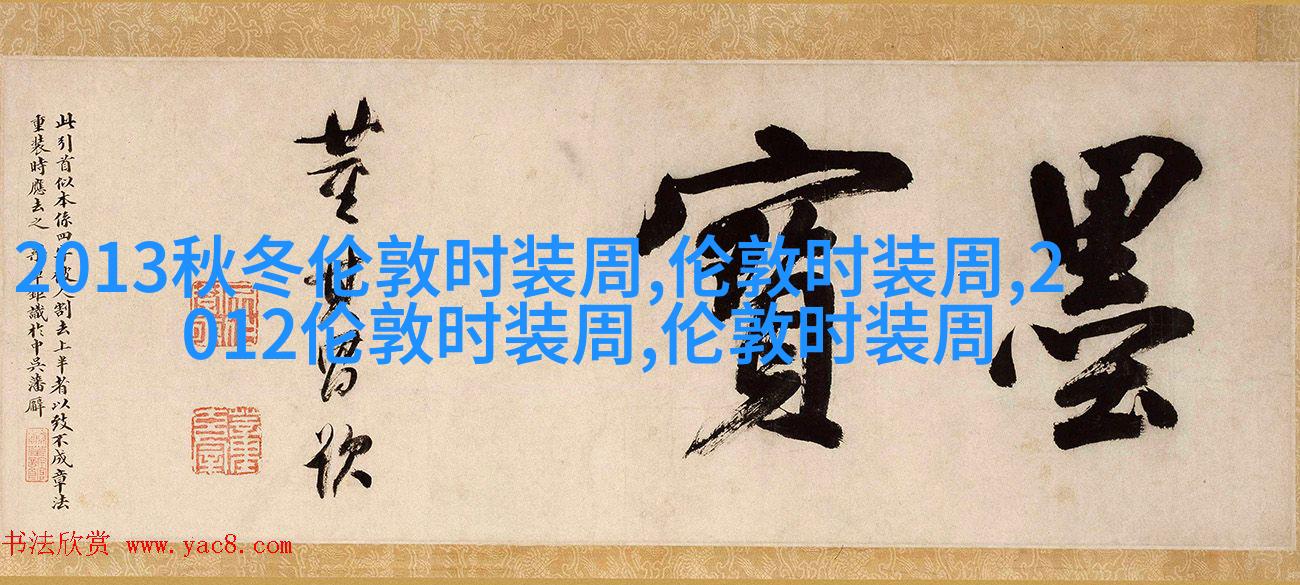 墨寶
董其昌
此引首似本係四
割去上半者以致不成章法
重裝時應去之
識於中吳潘廨
2013秋冬伦敦时装周,伦敦时装周,2
012伦敦时装周,伦敦时装周
书法欣赏 www.yac8.com